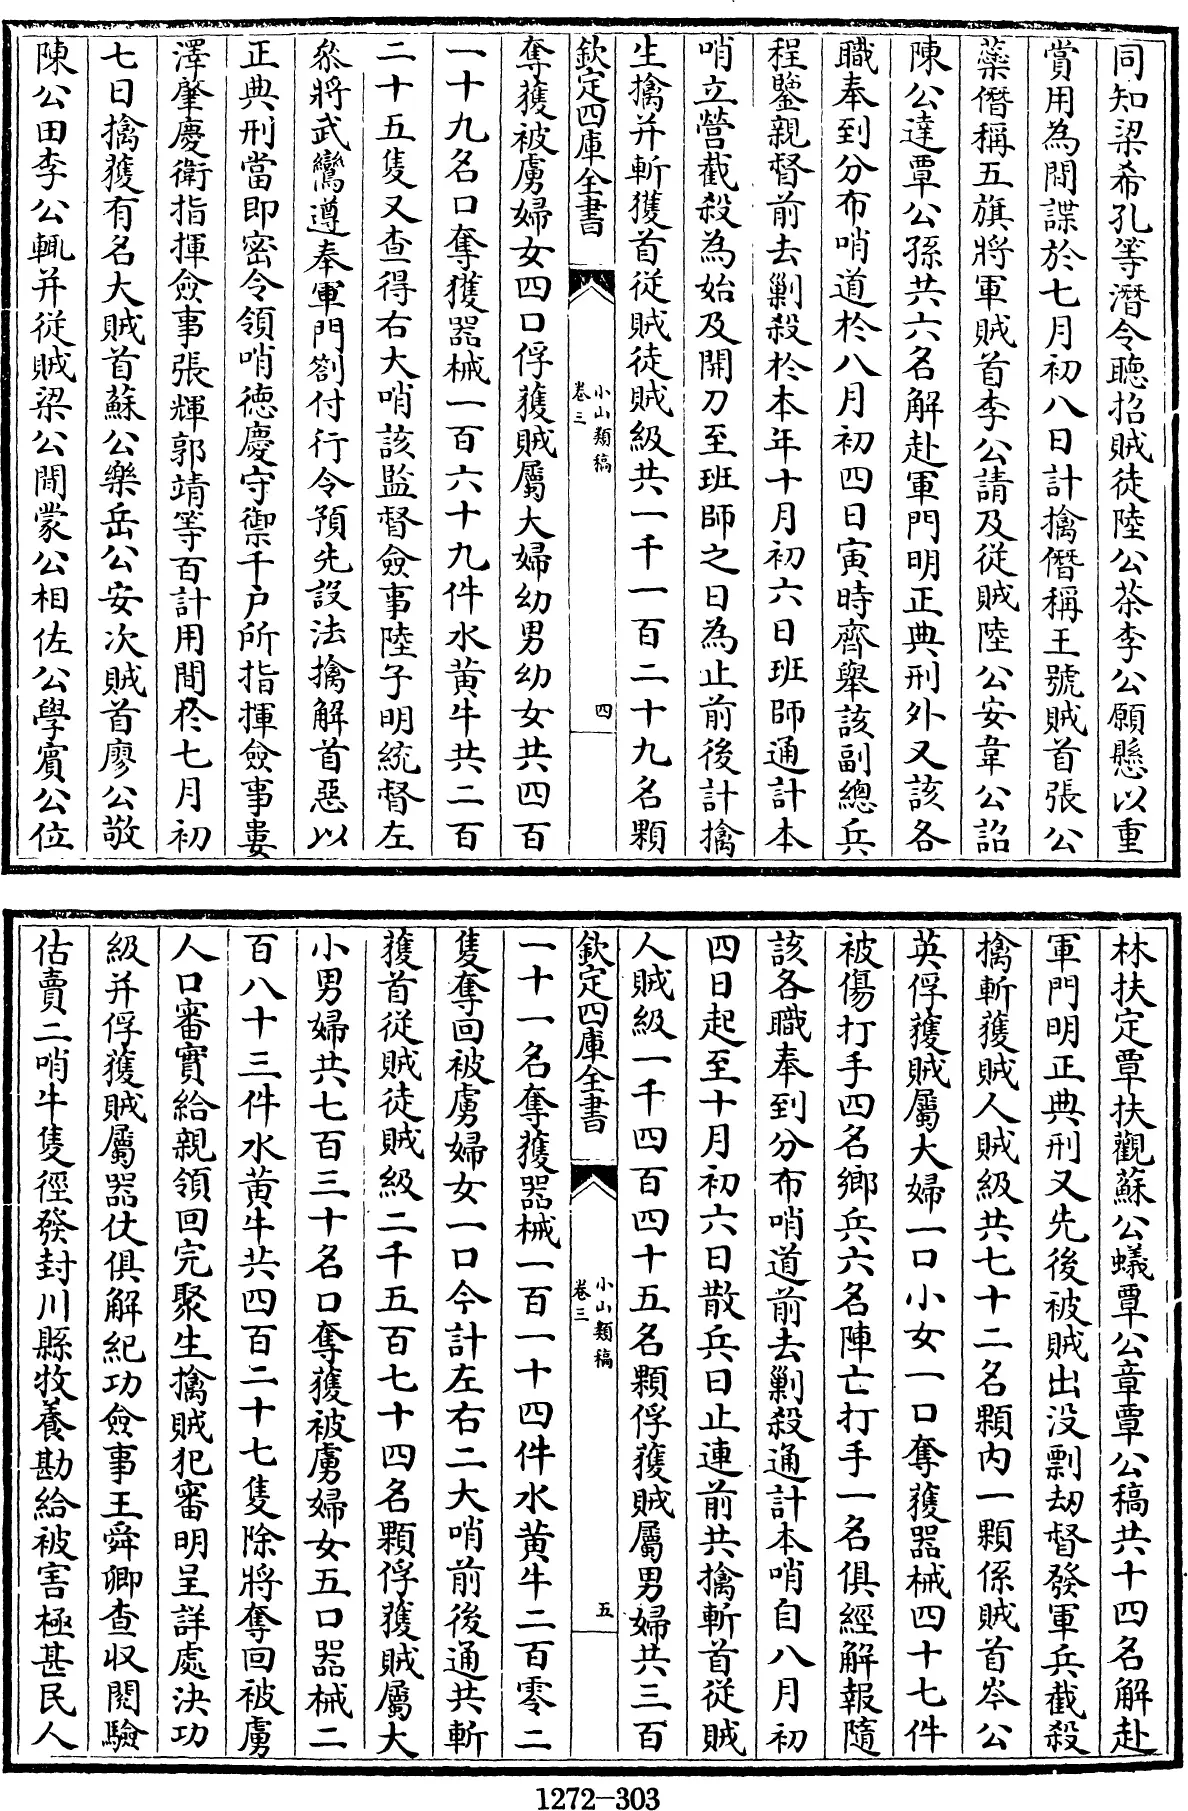 同知梁希孔等潛令聽招賊徒陸公茶李公願懸以重
賞用為間諜於七月初八日計擒僭稱王號賊首張公
藥僭稱五旗將軍賊首李公請及從賊陸公安韋公詔
陳公達覃公孫共六名解赴軍門明正典刑外又該各
職奉到分布哨道於八月初四日寅時齊舉該副總兵
程鑒親督前去剿殺於本年十月初六日班師通計本
哨立營截殺為始及開刀至班師之日為止前後計擒
生擒并斬獲首從賊徒賊級共一千一百二十九名顆
欽定四庫全書
小山類稿
卷三
四
奪獲被虜婦女四口俘獲賊屬大婦幼男幼女共四百
一十九名口奪獲器械一百六十九件水黃牛共二百
二十五隻又查得右大哨該監督僉事陸子明統督左
叅將武鸞遵奉軍門劄付行令預先設法擒解首惡以
正典刑當即密令領哨德慶守禦千户所指揮僉事婁
澤肇慶衛指揮僉事張輝郭靖等百計用間於七月初
七日擒獲有名大賊首蘇公樂岳公安次賊首廖公敬
陳公田李公輒并從賊梁公間蒙公相佐公學賓公位
林扶定覃扶觀蘇公蟻覃公章覃公稿共十四名解赴
軍門明正典刑又先後被賊出沒剽刼督發軍兵截殺
擒斬獲賊人賊級共七十二名顆内一顆係賊首岑公
英俘獲賊屬大婦一口小女一口奪獲器械四十七件
被傷打手四名鄉兵六名陣亡打手一名俱經解報隨
該各職奉到分布哨道前去剿殺通計本哨自八月初
四日起至十月初六日散兵日止連前共擒斬首從賊
人賊級一千四百四十五名顆俘獲賊屬男婦共三百
欽定四庫全書
小山類稿
卷三
五
一十一名奪獲器械一百一十四件水黃牛二百零二
隻奪回被虜婦女一口今計左右二大哨前後通共斬
獲首從賊徒賊級二千五百七十四名顆俘獲賊屬大
小男婦共七百三十名口奪獲被虜婦女五口器械二
百八十三件水黃牛共四百二十七隻除將奪回被虜
人口審實給親領回完聚生擒賊犯審明呈詳處決功
級并俘獲賊屬器仗俱解紀功僉事王舜卿查收閱驗
估賣二哨牛隻徑發封川縣牧養勘給被害極甚民人
1272-303